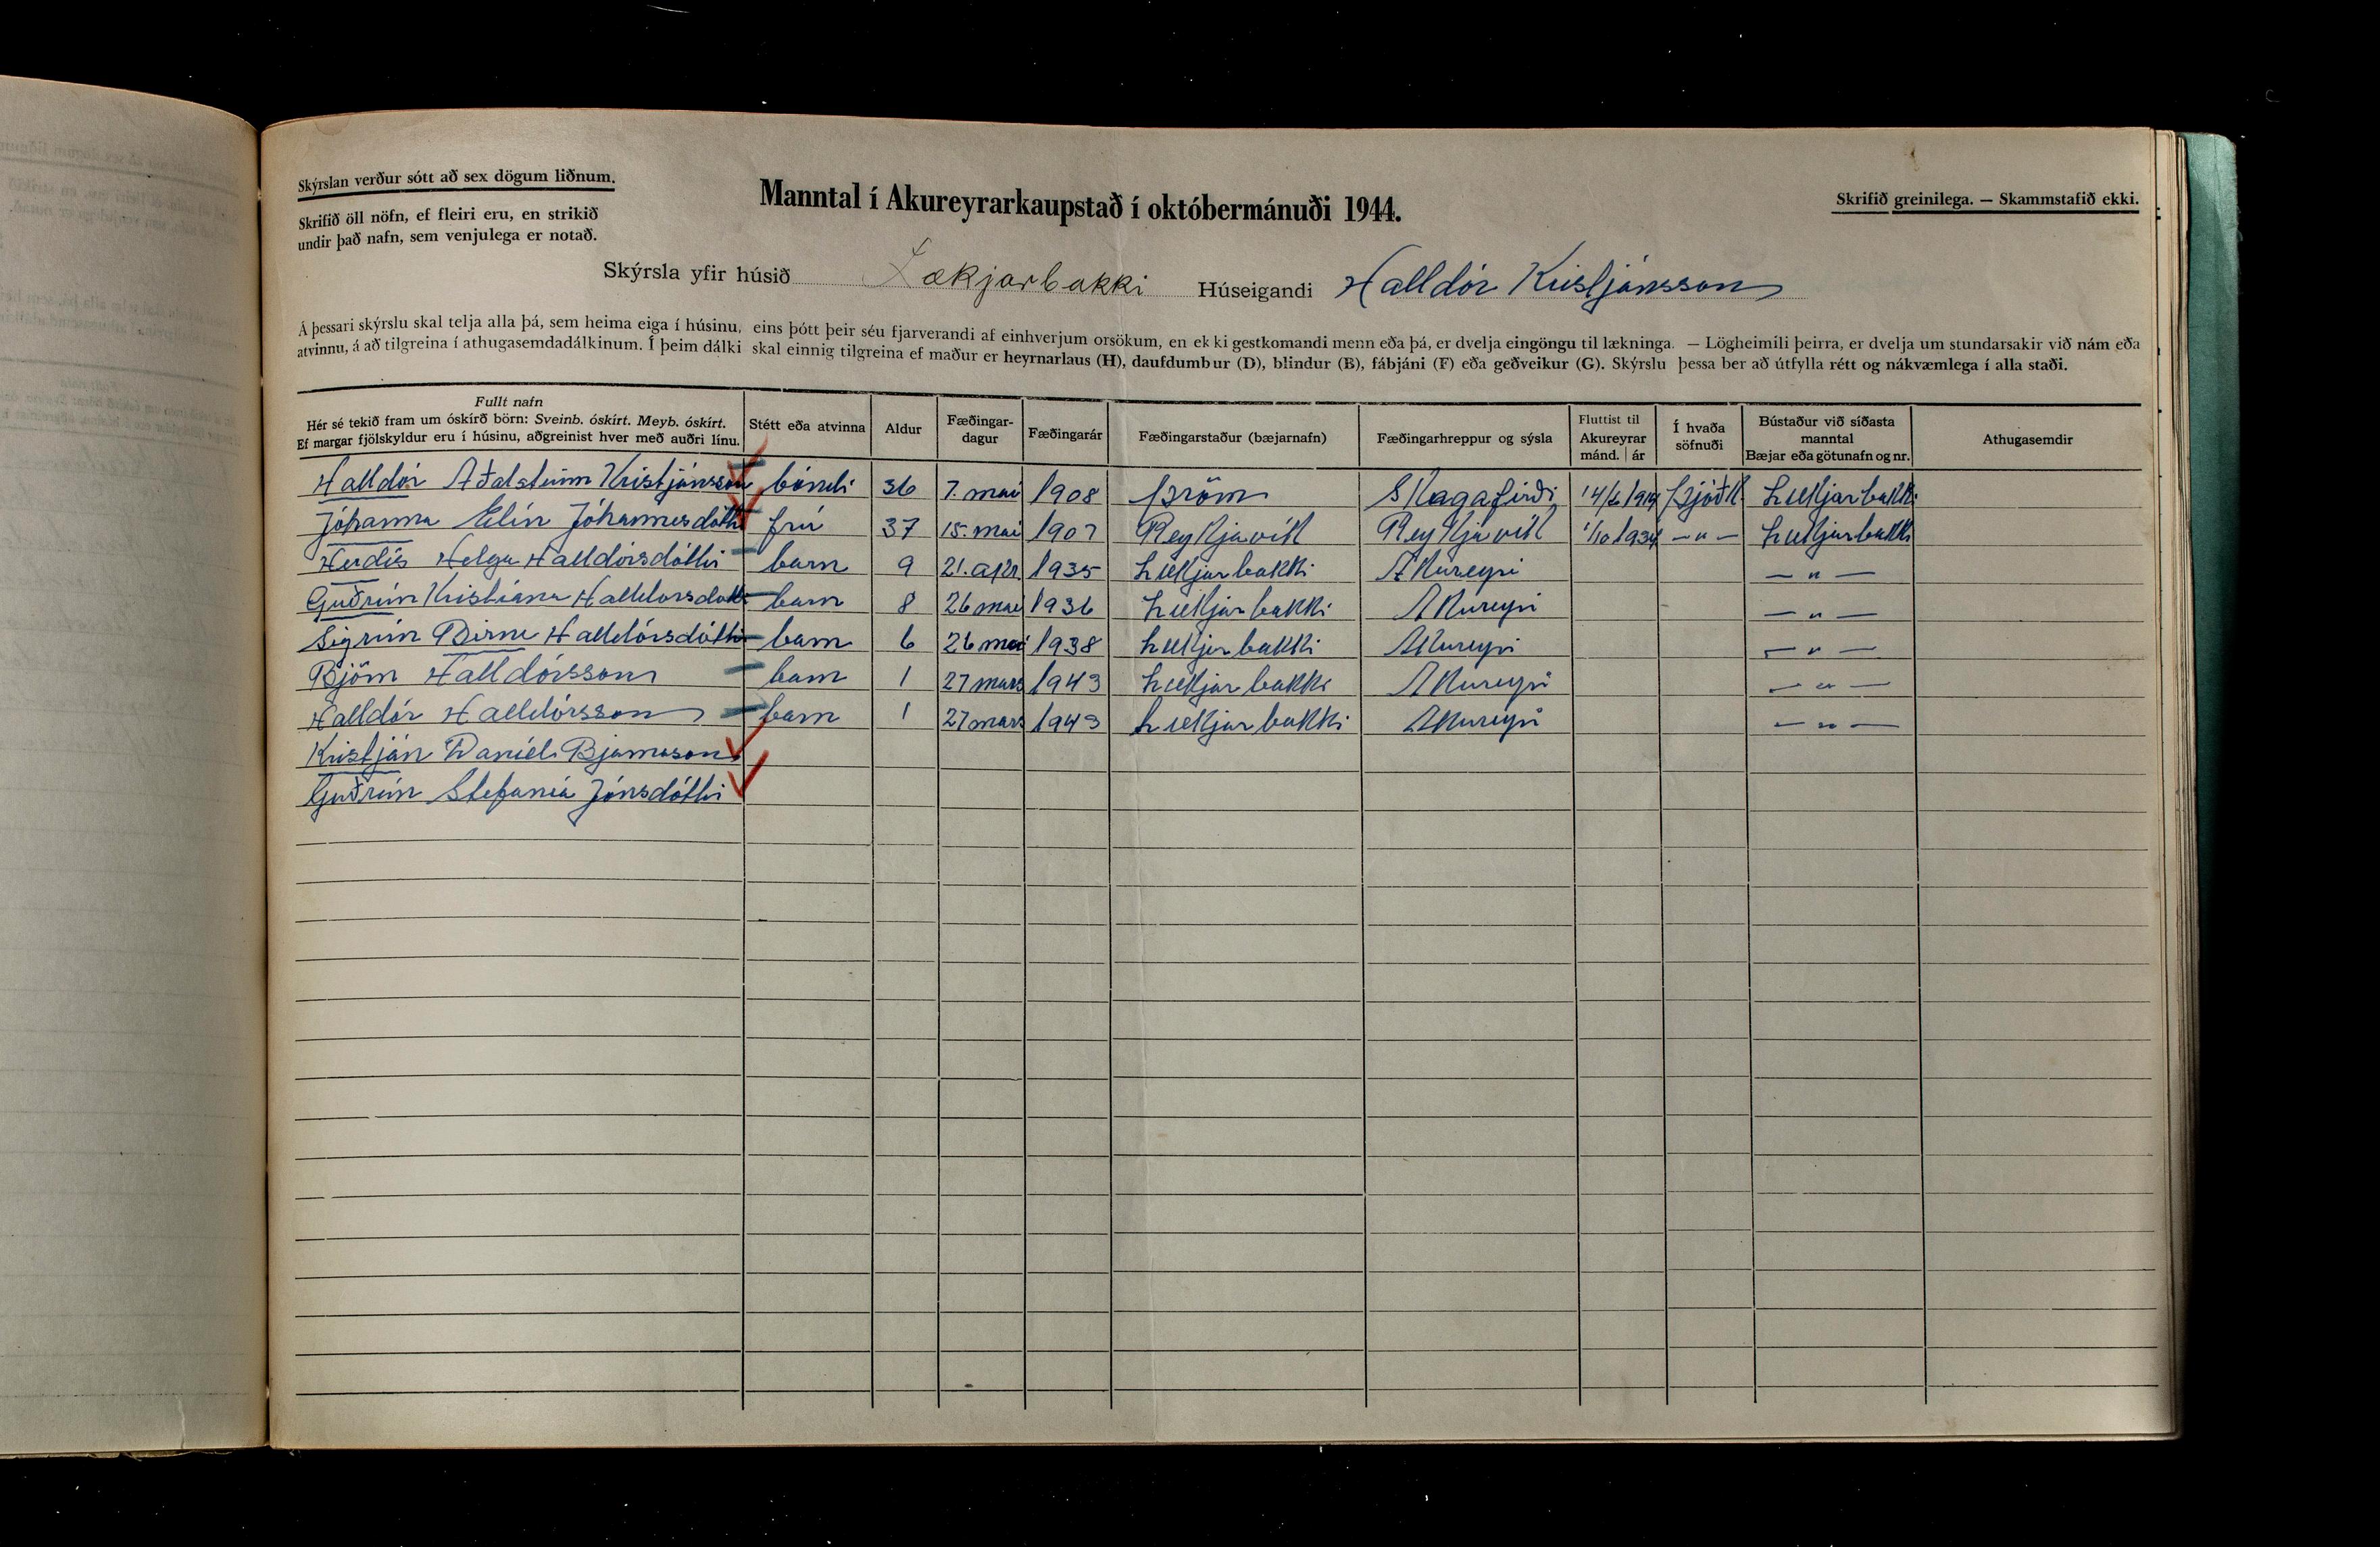 Skýrslan verður sótt að sex dögum liðnum.
Skrifið öll nöfn, ef fleiri eru, en strikið
undir það nafn, sem venjulega er notað.
Manntal í Akureyrarkaupstað í októbermánuði 1944.
Skrifið greinilega. — Skammstafið ekki.
Skýrsla yfir húsið Lækjarbakki Húseigandi Halldór Kristjánsson
Á þessari skýrslu skal telja alla þá, sem heima eiga í húsinu, eins þótt þeir séu fjarverandi af einhverjum orsökum, en ekki gestkomandi menn eða þá, er dvelja eingöngu til lækninga. — Lögheimili þeirra, er dvelja um stundarsakir við nám eða
atvinnu, á að tilgreina í athugasemdadálkinum. Í þeim dálki skal einnig tilgreina ef maður er heyrnarlaus (H), daufdumbur (D), blindur (B), fábjáni (F) eða geðveikur (G). Skýrslu þessa ber að útfylla rétt og nákvæmlega í alla staði.
Fullt nafn
Hér sé tekið fram um óskírð börn: Sveinb. óskírt. Meyb. óskírt.
Ef margar fjölskyldur eru í húsinu, aðgreinist hver með auðri línu.
Stétt eða atvinna
Aldur
Fæðingar-
dagur
Fæðingarár
Fæðingarstaður (bæjarnafn)
Fæðingarhreppur og sýsla
Fluttist til
Akureyrar
mánd. | ár
Í hvaða
söfnuði
Bústaður við síðasta
manntal
Bæjar eða götunafn og nr.
Athugasemdir
Halldór Aðalsteinn Kristjánsson bóndi 36 7. mai 1908 Þröm Skagafirði 14/6 1914 Þjóðk. Lækjarbakki
Jóhanna Elín Jóhannesdóttir frú 37 15. mai 1907 Reykjavík Reykjavík 1/10 1934 — " — Lækjarbakki
Herdís Helga Halldórsdóttir barn 9 21. apr. 1935 Lækjarbakki Akureyri — " —
Guðrún Kristiána Halldorsdótt barn 8 26 mai 1936 Lækjarbakki Akureyri — " —
Sigrún Birna Halldórsdóttir barn 6 26 mai 1938 Lækjarbakki Akureyri — " —
Björn Halldórsson barn 1 27 mars 1943 Lækjarbakki Akureyri — " —
Halldór Halldórsson barn 1 27 mars 1943 Lækjarbakki Akureyri — " —
Kristján Daníel Bjarnason
Guðrún Stefanía Jónsdóttir